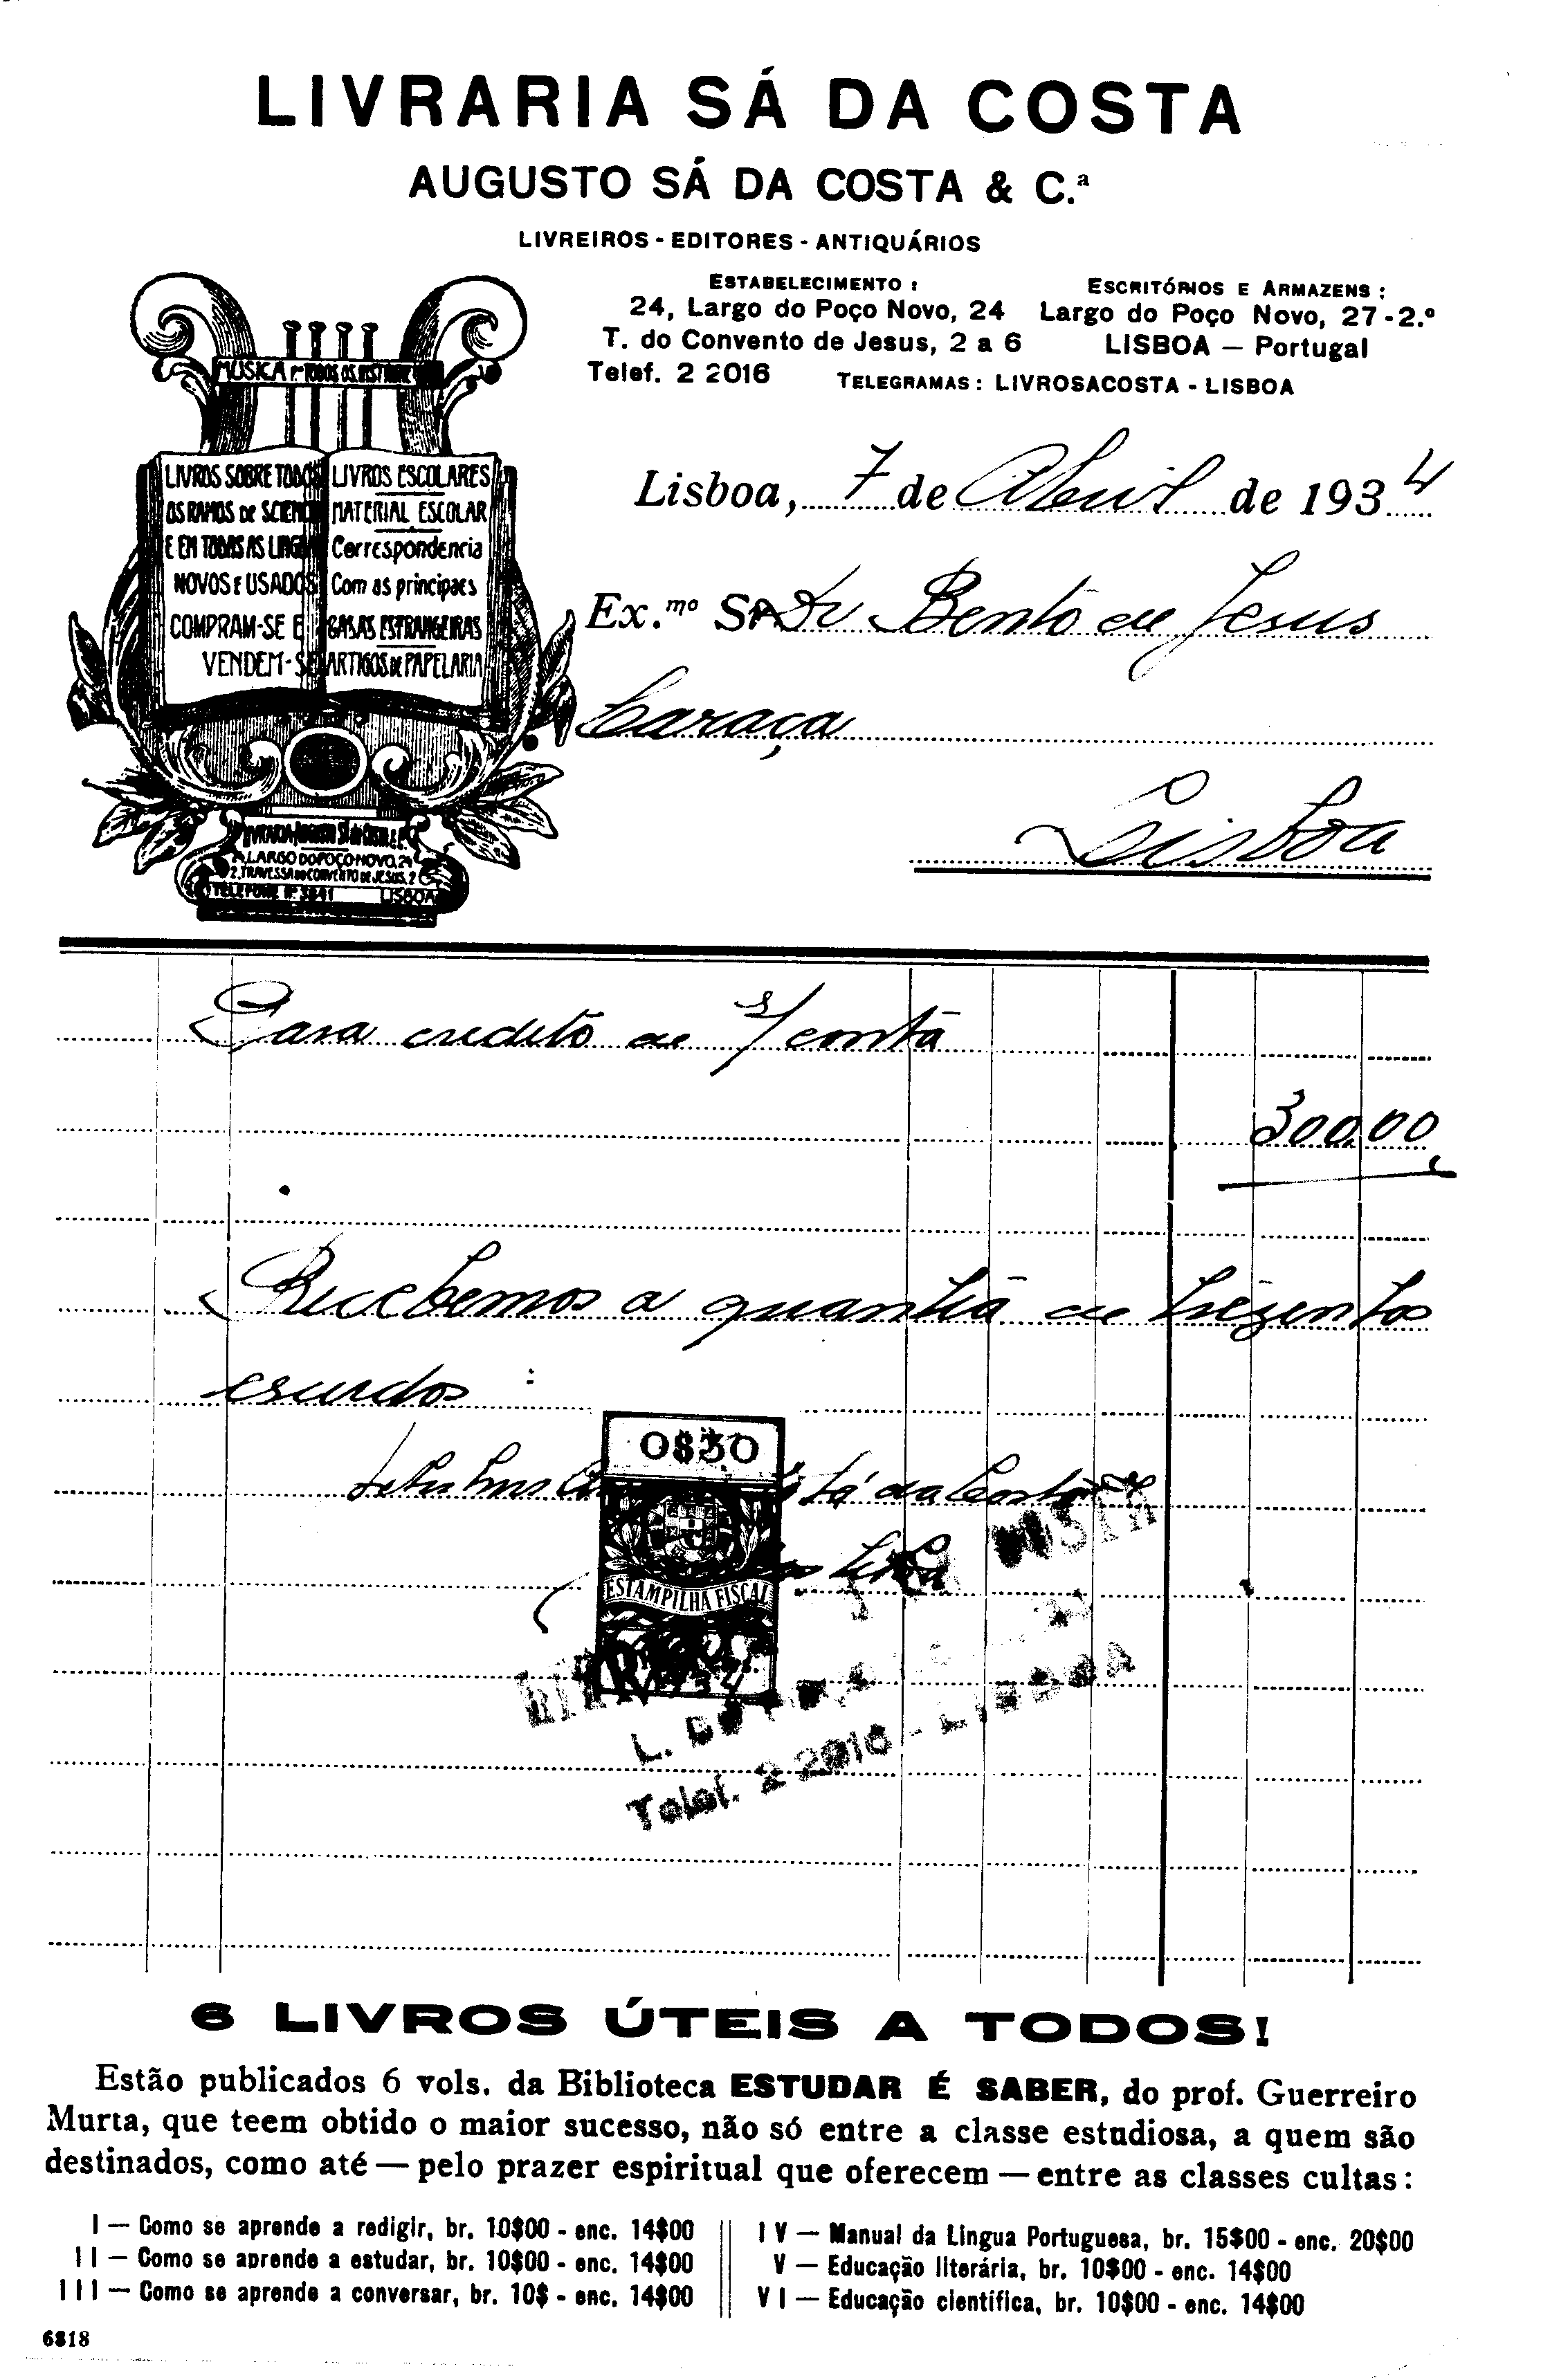 LIVRARIA SÁ DA COSTA
AUGUSTO SÁ DA COSTA & C.ª
LIVREIROS - EDITORES - ANTIQUÁRIOS
ESTABELECIMENTO :
24, Largo do Poço Novo, 24
T. do Convento de Jesus, 2 a 6
Telef. 2 2016
ESCRITÓRIOS E ARMAZENS :
Largo do Poço Novo, 27-2.º
LISBOA — Portugal
TELEGRAMAS : LIVROSACOSTA - LISBOA
MUSICA PARA TODOS OS
LIVROS SOBRE TODOS
OS RAMOS DE SCIENC
E EM TODAS AS LINGU
NOVOS E USADOS
COMPRAM-SE E
VENDEM-SE
LIVROS ESCOLARES
MATERIAL ESCOLAR
Correspondencia
Com as principaes
CASAS ESTRANGEIRAS
ARTIGOS DE PAPELARIA
LARGO DO POÇO NOVO, 24
2, TRAVESSA DO CONVENTO DE JESUS, 2
TELEFONE Nº 3841 LISBOA
Lisboa, 7 de Abril de 1934
Ex.mo Sr. Dr Bento de Jesus
Caraça
Lisboa
Para credito de s/ conta
300,00
Recebemos a quantia de trezentos
escudos
0$30
Sá da Costa
ESTAMPILHA FISCAL
L. DO
Telef. 2 2016 - LISBOA
6 LIVROS ÚTEIS A TODOS!
Estão publicados 6 vols. da Biblioteca ESTUDAR É SABER, do prof. Guerreiro
Murta, que teem obtido o maior sucesso, não só entre a classe estudiosa, a quem são
destinados, como até — pelo prazer espiritual que oferecem — entre as classes cultas :
I — Como se aprende a redigir, br. 10$00 - enc. 14$00
II — Como se aprende a estudar, br. 10$00 - enc. 14$00
III — Como se aprende a conversar, br. 10$ - enc. 14$00
IV — Manual da Lingua Portuguesa, br. 15$00 - enc. 20$00
V — Educação literária, br. 10$00 - enc. 14$00
VI — Educação científica, br. 10$00 - enc. 14$00
6818